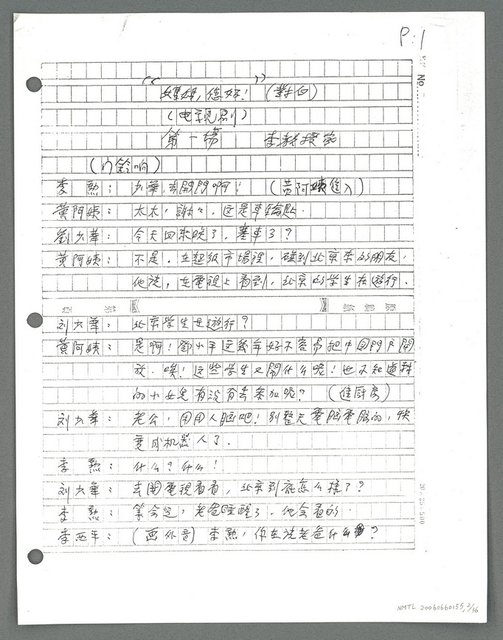 P.1
No.
"媽媽,您好!"(對白)
(电視剧)
第一場 李教授家
(门鈴响)
李 熱: 大華,去開門啊! (黄阿姨進入)
黄阿姨: 太太,謝謝,这是車鑰匙.
劉大華: 今天回來晚了.塞車了?
黄阿姨: 不是.在超級市場裡,碰到北京來的朋友.
他說,在電視上看到,北京的学生在遊行.
刘大華: 北京学生在遊行?
黄阿姨: 是啊!鄧小平这幾年好不容易把中国門户開
放.唉!这些学生又閙什么呢!也不知道我
的小女兒有没有去參加呢? (進厨房)
刘大華: 老公,用用人腦吧!别整天電腦電腦的,快
变成机器人了.
李 熱: 什么?什么!
刘大華: 去開電視看看,北京到底怎么樣了?
李 熱: 等会兒,老爸睡醒了,他会看的.
李亞年: (画外音)李熱,你在說老爸什么?
NMTL 20060660155, 2/36